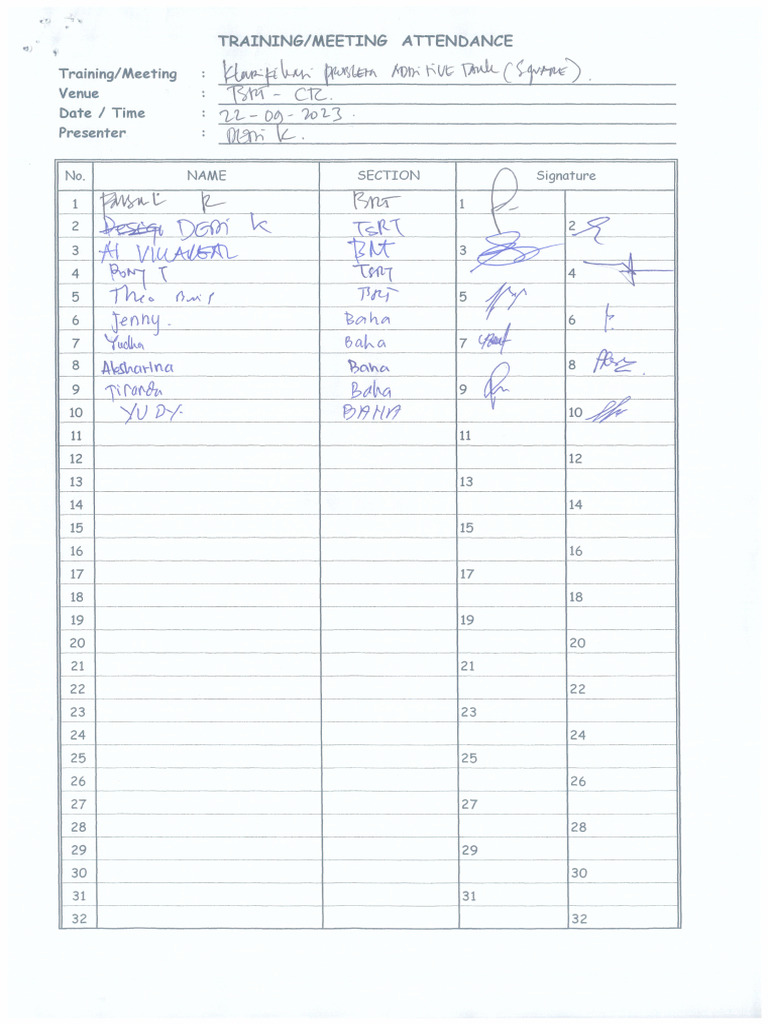 TRAINING/MEETING ATTENDANCE
Training/Meeting : Klarifikasi problem ADDITIVE TANK (SQUARE).
Venue : BRT - CR.
Date / Time : 22-09-2023.
Presenter : DEDI K.
No. NAME SECTION Signature
1 R BRT 1
2 DEDI K TSRT 2
3 AI BRT 3
4 RONY T TSRT 4
5 Theo BRT 5
6 Jenny. Baha 6
7 Yudha Baha 7
8 Aksharina Baha 8
9 Tiranda Baha 9
10 YUDY BAHA 10
11 11
12 12
13 13
14 14
15 15
16 16
17 17
18 18
19 19
20 20
21 21
22 22
23 23
24 24
25 25
26 26
27 27
28 28
29 29
30 30
31 31
32 32